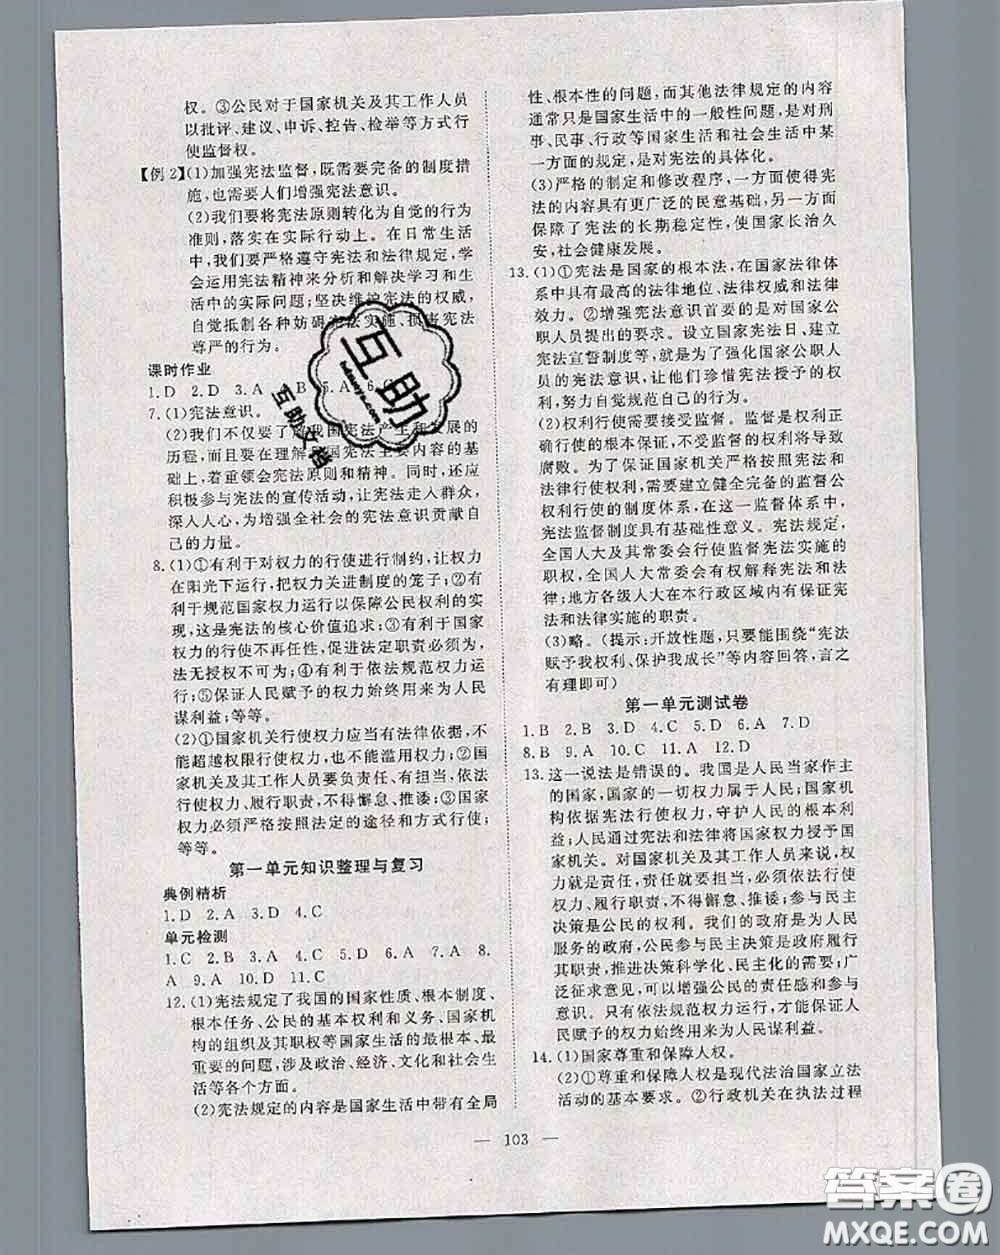 权。③公民对于国家机关及其工作人员
以批评、建议、申诉、控告、检举等方式行
使监督权。
【例2】(1)加强宪法监督,既需要完备的制度措
施,也需要人们增强宪法意识。
(2)我们要将宪法原则转化为自觉的行为
准则,落实在实际行动上。在日常生活
中,我们要严格遵守宪法和法律规定,学
会运用宪法精神来分析和解决学习和生
活中的实际问题;坚决维护宪法的权威,
自觉抵制各种妨碍宪法实施、损害宪法
尊严的行为。
课时作业
1.D 2.D 3.A B 5.A 6.C
7.(1)宪法意识。
(2)我们不仅要了解我国宪法产生和发展的
历程,而且要在理解我国宪法主要内容的基
础上,着重领会宪法原则和精神。同时,还应
积极参与宪法的宣传活动,让宪法走入群众,
深入人心,为增强全社会的宪法意识贡献自
己的力量。
8.(1)①有利于对权力的行使进行制约,让权力
在阳光下运行,把权力关进制度的笼子;②有
利于规范国家权力运行以保障公民权利的实
现,这是宪法的核心价值追求;③有利于国家
权力的行使不再任性,促进法定职责必须为,
法无授权不可为;④有利于依法规范权力运
行;⑤保证人民赋予的权力始终用来为人民
谋利益;等等。
(2)①国家机关行使权力应当有法律依据,不
能超越权限行使权力,也不能滥用权力;②国
家机关及其工作人员要负责任、有担当,依法
行使权力、履行职责,不得懈怠、推诿;③国家
权力必须严格按照法定的途径和方式行使;
等等。
第一单元知识整理与复习
典例精析
1.D 2.A 3.D 4.C
单元检测
1.C 2.B 3.A 4.C 5.D 6.D 7.A 8.
A 9.A 10.D 11.C
12.(1)宪法规定了我国的国家性质、根本制度、
根本任务、公民的基本权利和义务、国家机
构的组织及其职权等国家生活的最根本、最
重要的问题,涉及政治、经济、文化和社会生
活等各个方面。
(2)宪法规定的内容是国家生活中带有全局
性、根本性的问题,而其他法律规定的内容
通常只是国家生活中的一般性问题,是对刑
事、民事、行政等国家生活和社会生活中某
一方面的规定,是对宪法的具体化。
(3)严格的制定和修改程序,一方面使得宪
法的内容具有更广泛的民意基础,另一方面
保障了宪法的长期稳定性,使国家长治久
安,社会健康发展。
13.(1)①宪法是国家的根本法,在国家法律体
系中具有最高的法律地位、法律权威和法律
效力。②增强宪法意识首要的是对国家公
职人员提出的要求。设立国家宪法日、建立
宪法宣誓制度等,就是为了强化国家公职人
员的宪法意识,让他们珍惜宪法赋予的权
利,努力自觉规范自己的行为。
(2)权利行使需要接受监督。监督是权利正
确行使的根本保证,不受监督的权利将导致
腐败。为了保证国家机关严格按照宪法和
法律行使权利,需要建立健全完备的监督公
权利行使的制度体系,在这一监督体系中,
宪法监督制度具有基础性意义。宪法规定,
全国人大及其常委会行使监督宪法实施的
职权,全国人大常委会有权解释宪法和法
律;地方各级人大在本行政区域内有保证宪
法和法律实施的职责。
(3)略。(提示:开放性题,只要能围绕“宪法
赋予我权利、保护我成长”等内容回答,言之
有理即可)
第一单元测试卷
1.B 2.B 3.D 4.C 5.D 6.A 7.D
8.B 9.A 10.C 11.A 12.D
13.这一说法是错误的。我国是人民当家作主
的国家,国家的一切权力属于人民;国家机
构依据宪法行使权力,守护人民的根本利
益;人民通过宪法和法律将国家权力授予国
家机关。对国家机关及其工作人员来说,权
力就是责任,责任就要担当,必须依法行使
权力、履行职责,不得懈怠、推诿;参与民主
决策是公民的权利。我们的政府是为人民
服务的政府,公民参与民主决策是政府履行
其职责,推进决策科学化、民主化的需要;广
泛征求意见,可以增强公民的责任感和参与
意识。只有规范权力运行,才能保证人
民赋予的权力始终用来为人民谋利益。
14.(1)国家尊重和保障人权。
(2)①尊重和保障人权是现代法治国家立法
活动的基本要求。②行政机关在执法过程
— 103 —
互助
互助文档
答案圈
MXQE.COM